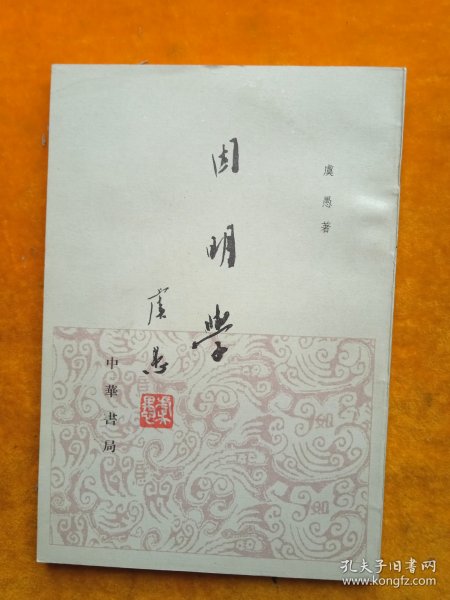 虞愚著
因明學
虞愚
虞愚
中華書局
孔夫子旧书网
www.kongfz.com